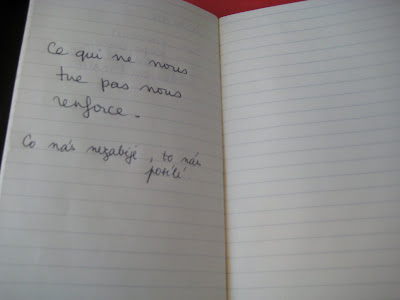 Ce qui ne nous
tue pas nous
renforce.
Co nás nezabije, to nás
posílí